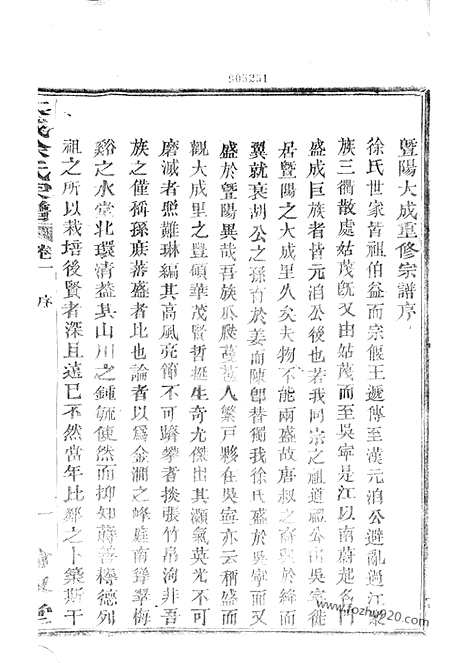 905251
暨陽大成重修宗譜序
徐氏世家皆祖伯益而宗偃王遞傳至漢元洎公避亂過江聚
族三衢散處姑茂旣又由姑茂而至吳寧是江以南蔚起名門
盛成巨族者皆元洎公後也若我同宗之祖道禔公由吳寧徙
居暨陽之大成里久矣夫物不能兩盛故唐叔之孫興於絳而
翼就衰胡公之孫育於姜而陳卽替獨我徐氏盛於吳寧而又
盛於暨陽異哉吾族瓜瓞蔓人繁戸夥在吳寧亦云稱盛而
觀大成里之豐碩華茂賢哲挺生奇尤傑出其灝氣英光不可
磨滅者照雜琳編其高風亮節不可躋攀者掞張竹帛洵非吾
族之僅稱孫庭蕃盛者比也論者以爲金澗之峰庭南聳翠梅
谿之水堂北環清蓋其山川之鍾毓使然而抑知蔣善棒德列
祖之所以栽培後賢者深且遠已不然當年比鄰之卜築斯干
氏宗譜
卷一
序
一
堂
www.fozhu920.com